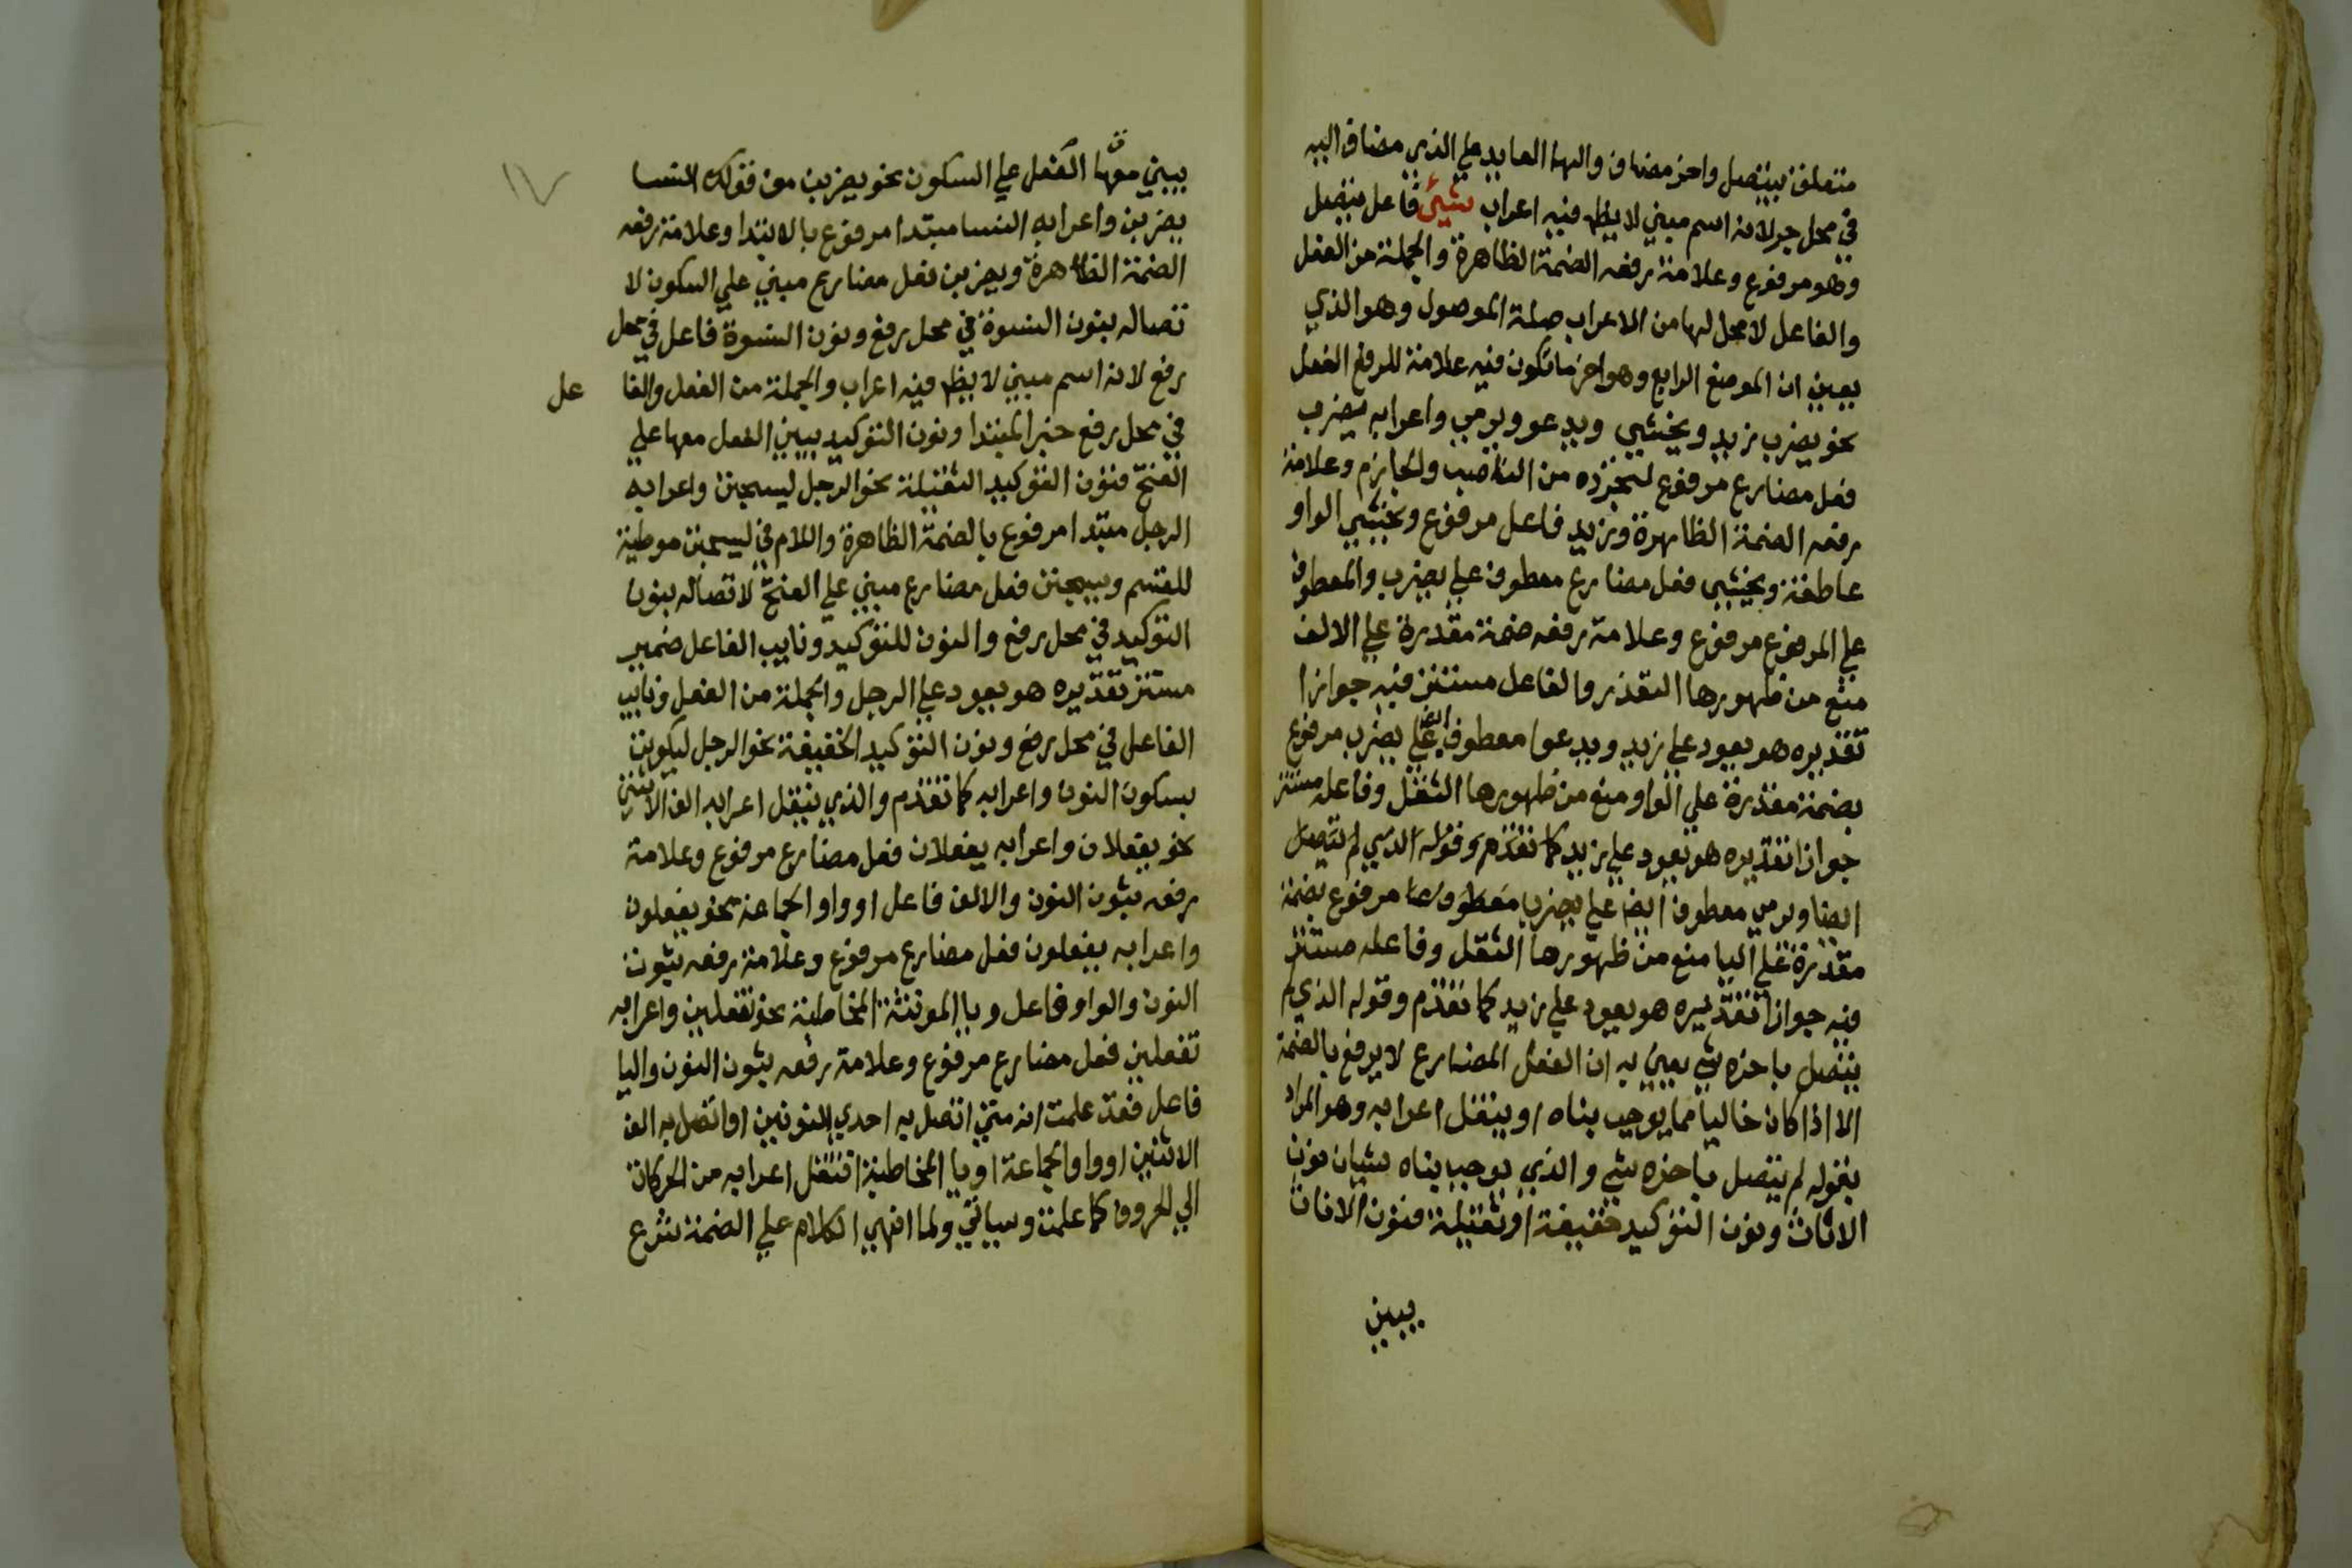 متعلق بيتصل واخر مضاف والها العايد علي الذي مضاف اليه
في محل جر لانه اسم مبني لا يظهر فيه اعراب شيئ فاعل يتصل
وهو مرفوع وعلامة رفعه الضمة الظاهرة والجملة من الفعل
والفاعل لا محل لها من الاعراب صلة الموصول وهو الذي
يعني ان الموضع الرابع وهو اخر ما تكون فيه علامة للرفع الفعل
نحو يضرب زيد ويخشي ويدعو ويرمي واعرابه يضرب
فعل مضارع مرفوع لتجرده من الناصب والجازم وعلامة
رفعه الضمة الظاهرة وزيد فاعل مرفوع ويخشي الواو
عاطفة ويخشي فعل مضارع معطوف علي يضرب والمعطوف
علي المرفوع مرفوع وعلامة رفعه ضمة مقدرة علي الالف
منع من ظهورها التعذر والفاعل مستتر فيه جوازا
تقديره هو يعود علي زيد ويدعوا معطوف علي يضرب مرفوع
بضمة مقدرة علي الواو منع من ظهورها الثقل وفاعله مستتر
جوازا تقديره هو يعود علي زيد كما تقدم وقوله الذي لم يتصل
ايضا ويرمي معطوف ايضا علي يضرب معطوف مرفوع بضمة
مقدرة علي اليا منع من ظهورها الثقل وفاعله مستتر
فيه جوازا تقديره هو يعود علي زيد كما تقدم وقوله الذي لم
يتصل باخره شي يعني به ان الفعل المضارع لا يرفع بالضمة
الا اذا كان خاليا مما يوجب بناه او ينقل اعرابه وهو المراد
بقوله لم يتصل باخره شي والذي يوجب بناه شيان نون
الاناث ونون التوكيد خفيفة او ثقيلة فنون الاناث
يبني
١٧
يبني معها الفعل علي السكون نحو يضربن من قولك النسا
يضربن واعرابه النسا مبتدا مرفوع بالابتدا وعلامة رفعه
الضمة الظاهرة ويضربن فعل مضارع مبني علي السكون لا
تصاله بنون النسوة في محل رفع ونون النسوة فاعل في محل
رفع لانه اسم مبني لا يظهر فيه اعراب والجملة من الفعل والفا عل
في محل رفع خبر المبتدا ونون التوكيد يبني الفعل معها علي
الفتح فنون التوكيد الثقيلة نحو الرجل ليسجنن واعرابه
الرجل مبتدا مرفوع بالضمة الظاهرة واللام في ليسجنن موطية
للقسم ويسجنن فعل مضارع مبني علي الفتح لاتصاله بنون
التوكيد في محل رفع والنون للتوكيد ونايب الفاعل ضمير
مستتر تقديره هو يعود علي الرجل والجملة من الفعل ونايب
الفاعل في محل رفع ونون التوكيد الخفيفة نحو الرجل ليكونن
بسكون النون واعرابه كما تقدم والذي ينقل اعرابه الف الاثنين
نحو يفعلان واعرابه يفعلان فعل مضارع مرفوع وعلامة
رفعه ثبوت النون والالف فاعل او واو الجماعة نحو يفعلون
واعرابه يفعلون فعل مضارع مرفوع وعلامة رفعه ثبوت
النون والواو فاعل ويا المونثة المخاطبة نحو تفعلين واعرابه
تفعلين فعل مضارع مرفوع وعلامة رفعه ثبوت النون واليا
فاعل فقد علمت انه متي اتصل به احدي النونين او اتصل به الف
الاثنين او واو الجماعة او يا المخاطبة انتقل اعرابه من الحركات
الي الحروف كما علمت وسياتي ولما انهي الكلام علي الضمة شرع